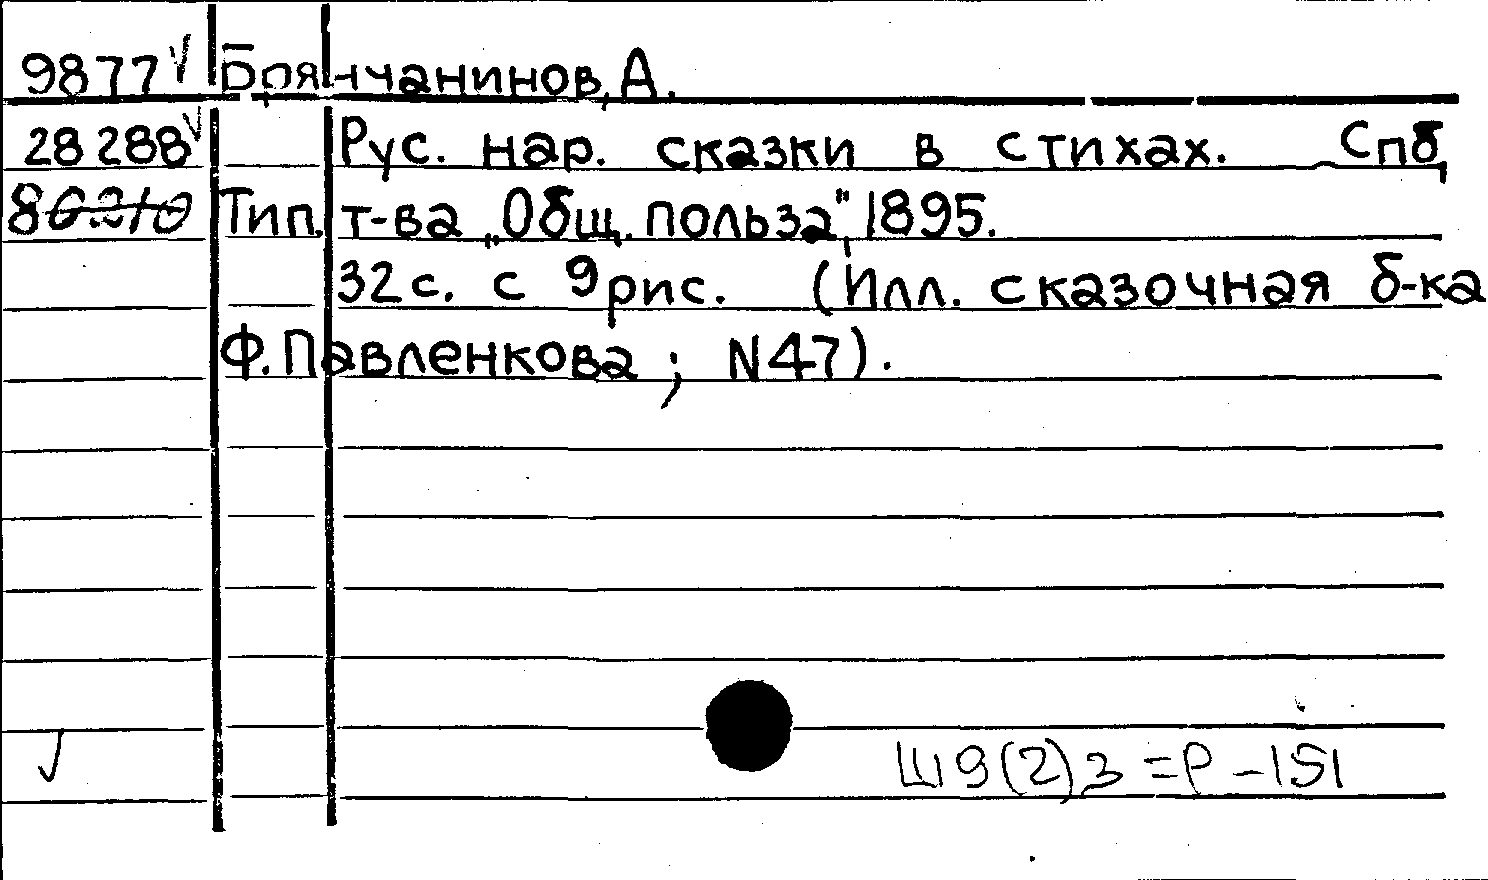 9877 V Брянчанинов, А.
28 288 V Рус. нар. сказки в стихах. Спб,
86.210 Тип. т-ва „Общ. польза", 1895.
32 с. с 9 рис. (Илл. сказочная б-ка
Ф. Павленкова ; N47).
Ш9(2)3 = Р - 151